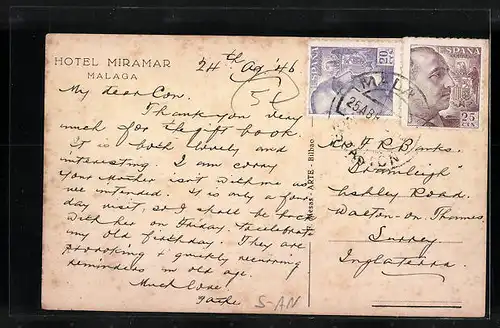 HOTEL MIRAMAR
MALAGA
24th Ap '46
My dear Con.
Thank you very
much for the gift book.
It is both lovely and
interesting. I am sorry
your Mother isn't with me as
we intended. It is only a four
day visit, so I shall be back
with her on Friday, to celebrate
my old birthday. They are
provoking & quickly recurring
reminders in old age.
Much love.
S-AN
Mesas - ARTE - Bilbao
ESPAÑA
20 CTS
ESPAÑA
25 CTS
25 ABR
R. Banks.
Ashley Road.
Walton-on-Thames.
Surrey
Inglaterra.